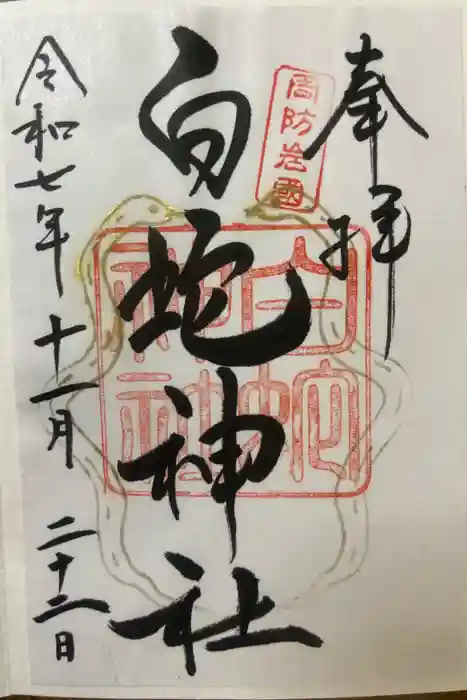 奉拝
周防岩國
白蛇神社
白蛇
神社
令和七年十一月二十二日